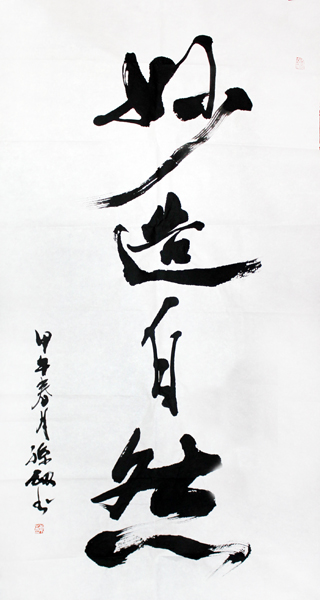 妙造自然
甲午春月孙